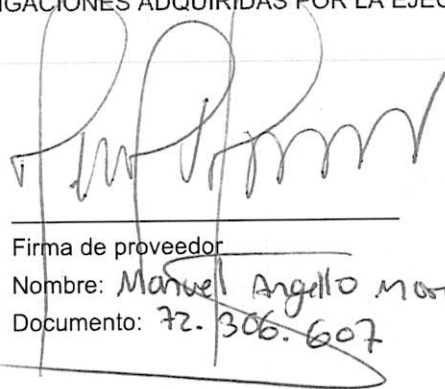 IGACIONES ADQUIRIDAS POR LA EJEC
Firma de proveedor
Nombre: Manuel Angello
Documento: 72.306.607